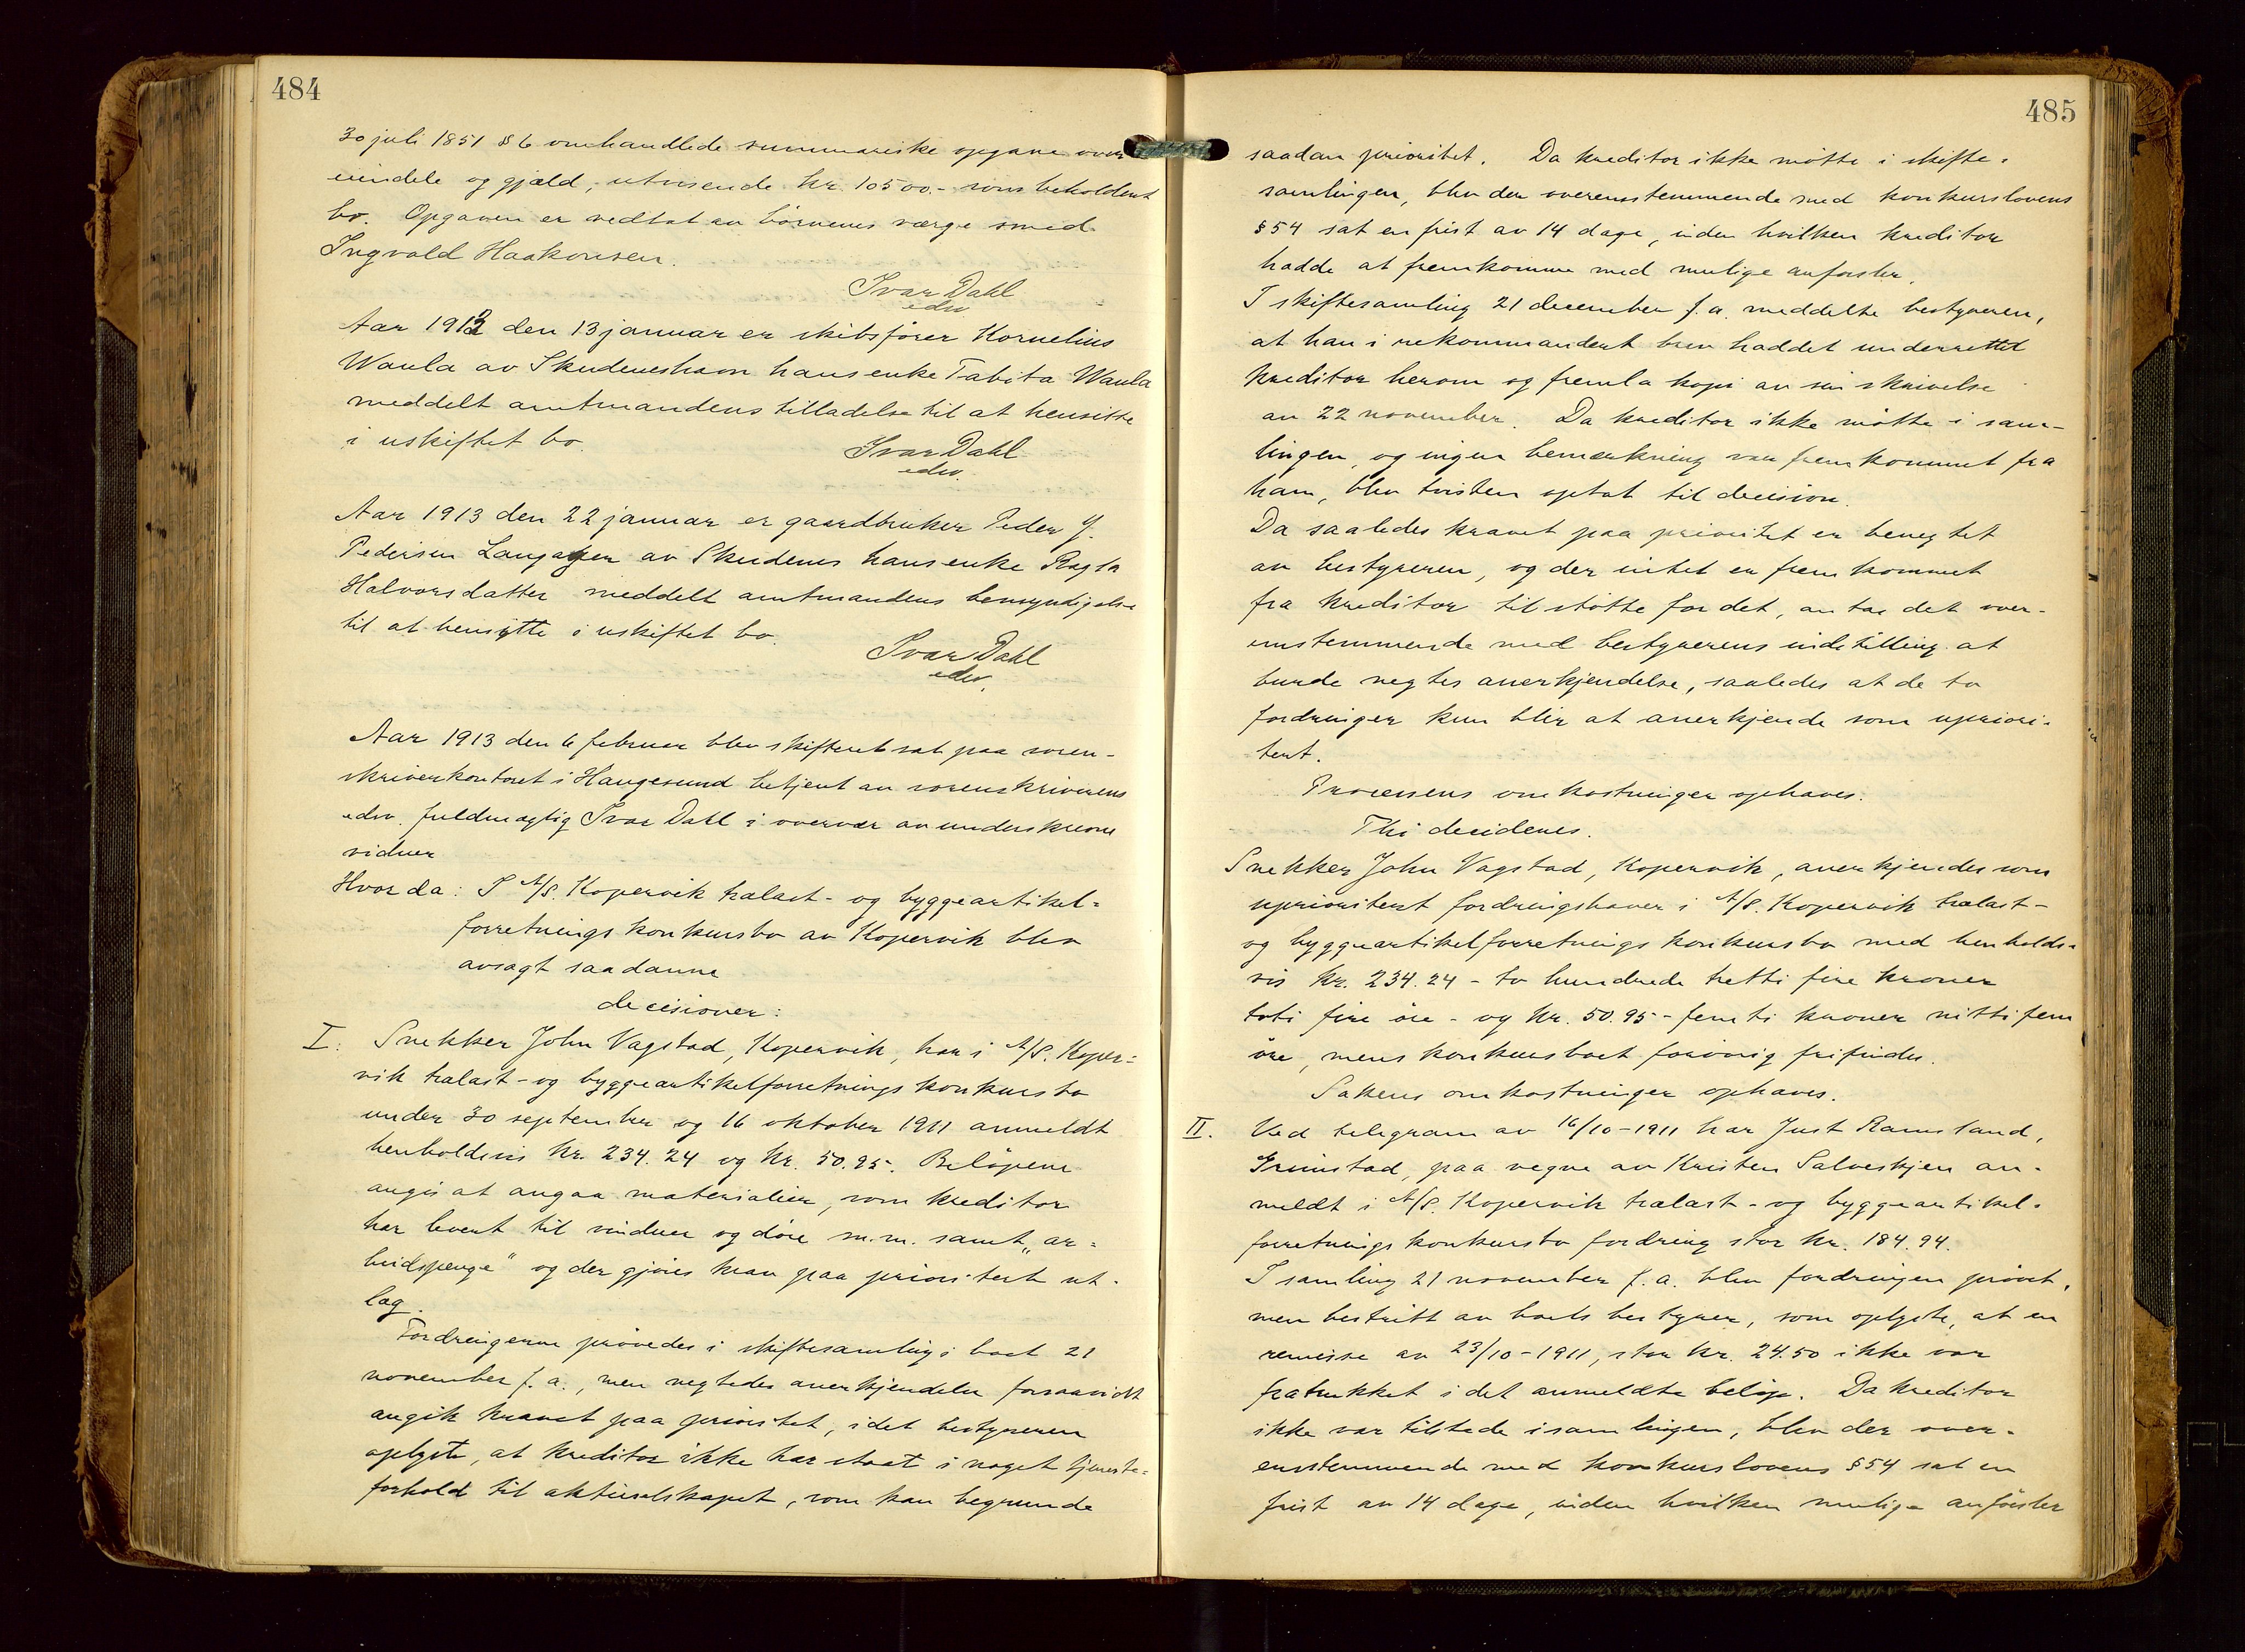 484
30 juli 1851 § 6 omhandlede summariske opgave over
eiendele og gjæld, utvisende kr. 10500.- som beholdent
bo. Opgaven er vedtat av börnenes værge smed
Ingvald Haakonsen.
Ivar Dahl
edsv
Aar 1913 den 13 januar er skibsförer Kornelius
Waula av Skudeneshavn hans enke Tabita Waula
meddelt amtmandens tilladelse til at hensitte
i uskiftet bo.
Ivar Dahl
edsv.
Aar 1913 den 22 januar er gaardbruker Peder J.
Pedersen Langaker av Skudenes hans enke Ragla
Halvorsdatter meddelt amtmandens bemyndigelse
til at hensitte i uskiftet bo.
Ivar Dahl
edsv.
Aar 1913 den 6 februar blev skifteret sat paa soren-
skriverkontoret i Haugesund betjent av sorenskriverens
edsv. fuldmægtig Ivar Dahl i overvær av underskrevne
vidner
Hvor da: I A/S. Kopervik trælast- og byggeartikel-
forretnings konkursbo av Kopervik blev
avsagt saadanne
decisioner:
I. Snekker John Vagstad, Kopervik, har i A/S. Koper-
vik trælast- og byggeartikelforretnings konkursbo
under 30 september og 16 oktober 1911 anmeldt
henholdsvis kr. 234.24 og kr. 50.95. Belöpene
angis at angaa materialier, som kreditor
har levert til vinduer og döre m.m. samt „ar-
beidspenge" og der gjöres krav paa prioritert ut-
læg.
Fordringerne prövedes i skiftesamling i boet 21
november f. a., men negtedes anerkjendelse forsaavidt
angik kravet paa prioritet, idet bestyreren
oplyste, at kreditor ikke har staat i noget tjeneste-
forhold til aktieselskapet, som kan begrunde
485
saadan prioritet. Da kreditor ikke mötte i skifte-
samlingen, blev der overensstemmende med konkurslovens
§ 54 sat en frist av 14 dage, inden hvilken kreditor
hadde at fremkomme med mulige anförsler.
I skiftesamling 21 december f. a. meddelte bestyreren,
at han i rekommandert brev haddet underrettet
kreditor herom og fremla kopi av sin skrivelse
av 22 november. Da kreditor ikke mötte i sam-
lingen, og ingen bemærkning var fremkommet fra
ham, blev tvisten optat til decision.
Da saaledes kravet paa prioritet er benegtet
av bestyreren, og der intet er fremkommet
fra kreditor til stötte for det, antas det over-
ensstemmende med bestyrerens indstilling at
burde negtes anerkjendelse, saaledes at de to
fordringer kun blir at anerkjende som upriori-
tert.
Processens omkostninger ophæves.
Thi decideres.
Snekker John Vagstad, Kopervik, anerkjendes som
uprioritert fordringshaver i A/S. Kopervik trælast-
og byggeartikelforretnings konkursbo med henholds-
vis kr. 234.24 - to hundrede tretti fire kroner
toti fire öre - og kr. 50.95 - femti kroner nitti fem
öre, mens konkursboet forövrig frifindes.
Sakens omkostninger ophæves.
II. Ved telegram av 16/10-1911 har Just Ramsland,
Grimstad, paa vegne av Kristen Salveskjen an-
meldt i A/S. Kopervik trælast- og byggeartikel-
forretnings konkursbo fordring stor kr. 184.94.
I samling 21 november f. a. blev fordringen prövet,
men bestritt av boets bestyrer, som oplyste, at en
remisse av 23/10-1911, stor kr. 24.50 ikke var
fratrukket i det anmeldte belöp. Da kreditor
ikke var tilstede i samlingen, blev der over-
ensstemmende med konkurslovens § 54 sat en
frist av 14 dage, inden hvilken mulige anförsler